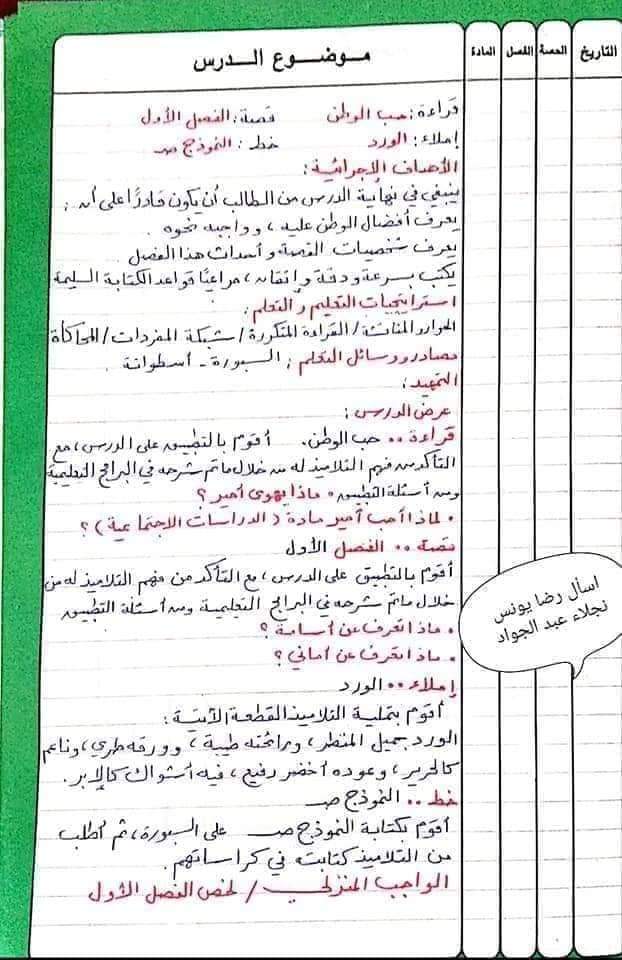 التاريخ | الحصة | الفصل | المادة | موضوع الدرس
قراءة: حب الوطن قصة: الفصل الأول
إملاء: الورد خط: النموذج صـ
الأهداف الإجرائية:
ينبغي في نهاية الدرس من الطالب أن يكون قادرًا على أن:
يعرف أفضال الوطن عليه، وواجبه نحوه.
يعرف شخصيات القصة وأحداث هذا الفصل.
يكتب بسرعة ودقة وإتقان، مراعيًا قواعد الكتابة السليمة
استراتيجيات التعليم والتعلم:
الحوار والمناقشة / القراءة المتكررة / شبكة المفردات / المحاكاة
مصادر ووسائل التعلم: السبورة - أسطوانة.
التمهيد:
عرض الدرس:
قراءة •• حب الوطن. أقوم بالتطبيق على الدرس، مع
التأكد من فهم التلاميذ له من خلال ما تم شرحه في البرامج التعليمية
ومن أسئلة التطبيق • ماذا يهوى أمير؟
• لماذا أحب أمير مادة (الدراسات الاجتماعية)؟
قصة •• الفصل الأول
أقوم بالتطبيق على الدرس، مع التأكد من فهم التلاميذ له من
خلال ما تم شرحه في البرامج التعليمية ومن أسئلة التطبيق
• ماذا تعرف عن أسامة؟
• ماذا تعرف عن أماني؟
إملاء •• الورد
أقوم بتملية التلاميذ القطعة الآتية:
الورد جميل المنظر، ورائحته طيبة، وورقه طري، وناعم
كالحرير، وعوده أخضر رفيع، فيه أشواك كالإبر.
خط •• النموذج صـ
أقوم بكتابة النموذج صـ على السبورة، ثم أطلب
من التلاميذ كتابته في كراساتهم.
الواجب المنزلي / لخص الفصل الأول
اسأل رضا يونس
نجلاء عبد الجواد